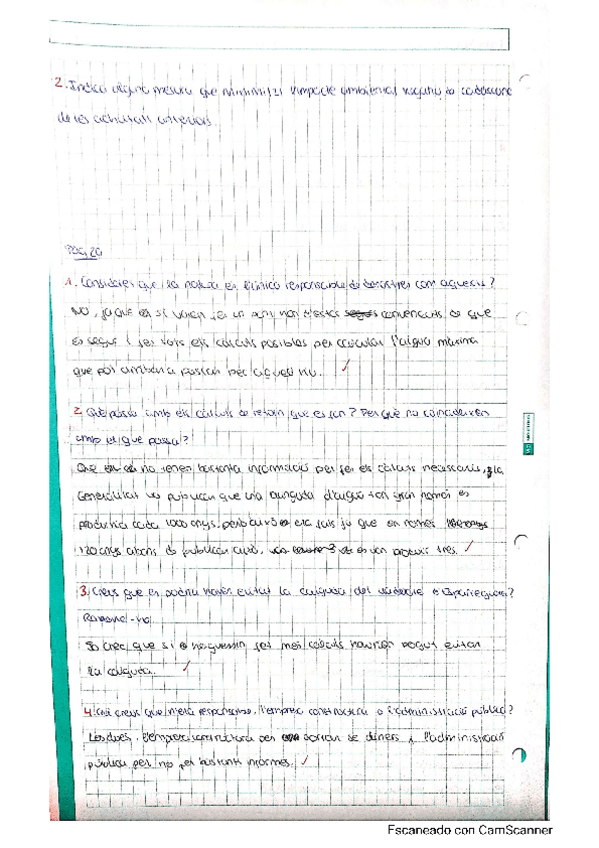 2. Indica alguna mesura que minimitzi l'impacte ambiental negatiu
de les activitats anteriors.
Pàg 29
1. Consideres que la natura és l'única responsable de desastres com aquests?
NO, ja que si volen fer un pont han d'estar convençuts de que
és segur i fer tots els càlculs posibles per calcular l'aigua màxima
que pot arribar a passar per aquell riu.
2. Què passa amb els càlculs de retorn que es fan? Per què no coincideixen
amb el que passa?
Que no tenen bastanta informació per fer els càlculs necessaris, la
Generalitat va publicar que una aiguada d'aigua tan gran només es
produiria cada 1000 anys, però això era fals ja que en només
120 anys abans de publicar això, es van produir tres.
3. Creus que es podria haver evitat la caiguda del viaducte d'Esparreguera?
Raona-ho.
Jo crec que si haguessin fet més càlculs haurien pogut evitar
la caiguda.
4. Qui creus que n'era responsable, l'empresa constructora o l'administració pública?
Les dues, l'empresa constructora per de diners i l'administració
pública per no fer bastants informes.
Escaneado con CamScanner